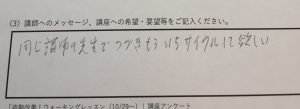 (3) 講師へのメッセージ、講座への希望・要望等をご記入ください。
同じ講師の先生でつづきもう1サイクルして欲しい
「姿勢改革!ウォーキングレッスン(10/29~)」講座アンケート